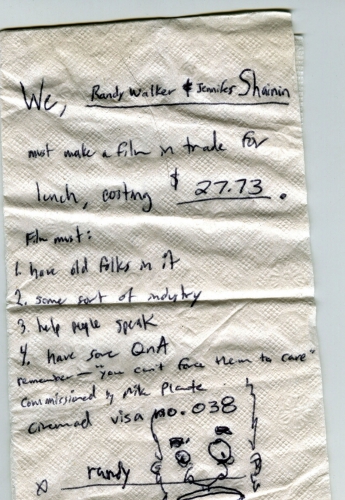 We, Randy Walker & Jennifer Shainin
must make a film in trade for
lunch, costing $ 27.73.
Film must:
1. have old folks in it
2. some sort of industry
3. help people speak
4. have some QnA
remember — "you can't force them to care"
Commissioned by Mike Plante
cinemad visa no. 038
x randy